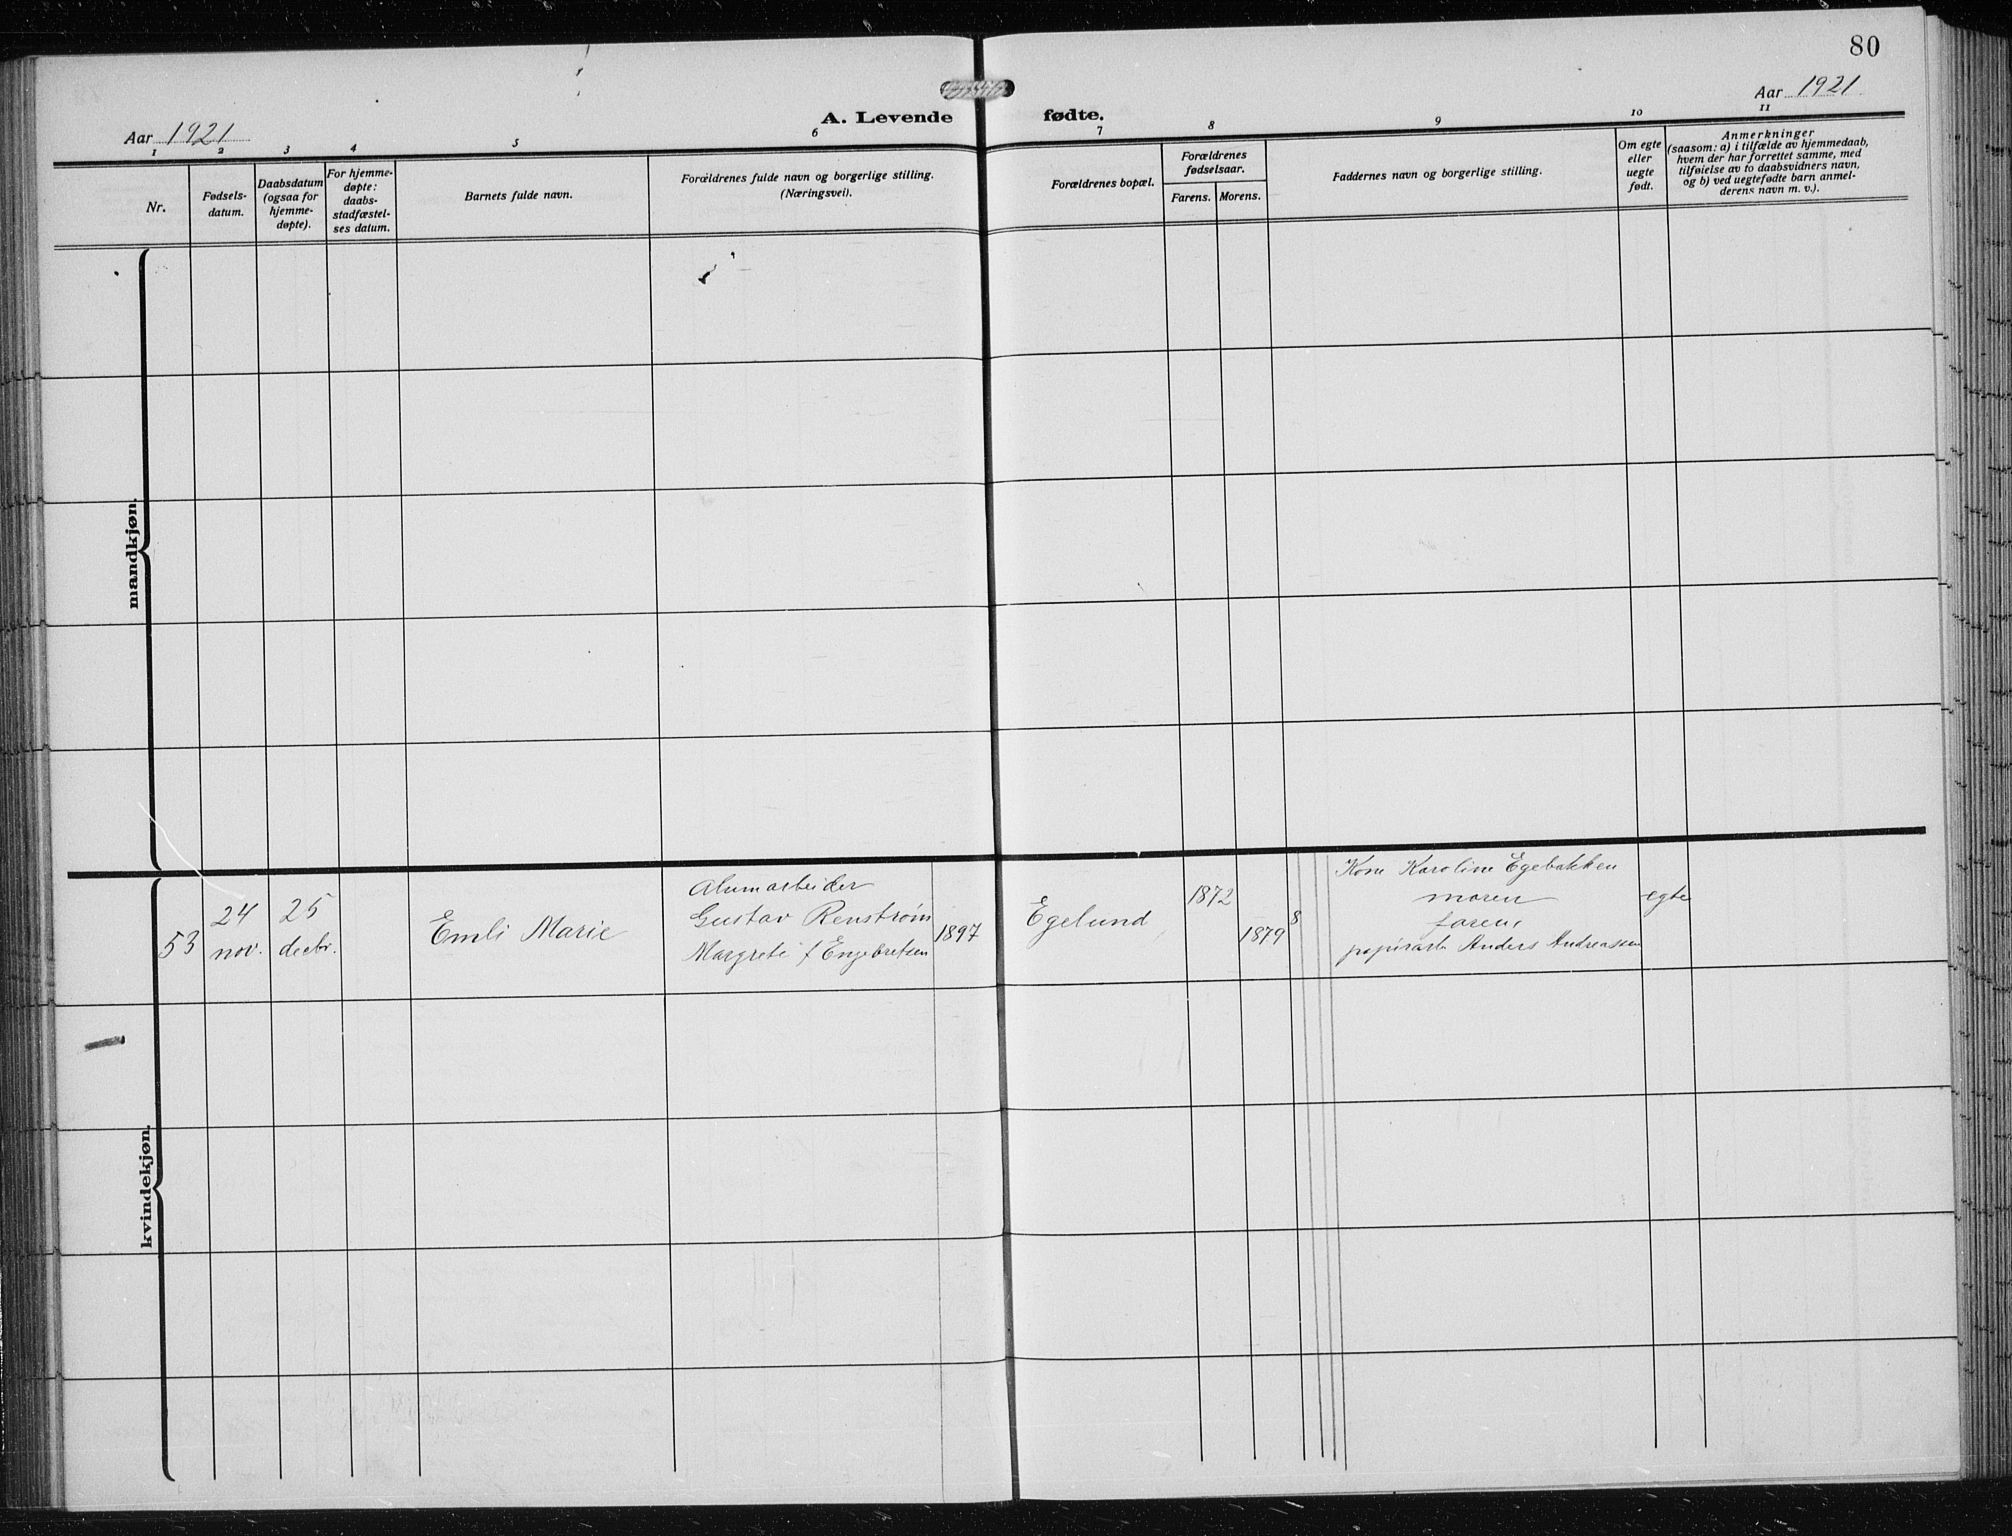 80
Aar 1921
Aar 1921
A. Levende fødte.
1 2 3 4 5 6 7 8 9 10 11
Nr.
Fødsels-
datum.
Daabsdatum
(ogsaa for
hjemme-
døpte).
For hjemme-
døpte:
daabs-
stadfæstel-
ses datum.
Barnets fulde navn.
Forældrenes fulde navn og borgerlige stilling.
(Næringsvei).
Forældrenes bopæl.
Forældrenes
fødselsaar.
Farens. Morens.
Faddernes navn og borgerlige stilling.
Om egte
eller
uegte
født.
Anmerkninger
(saasom: a) i tilfælde av hjemmedaab,
hvem der har forrettet samme, med
tilføielse av to daabsvidners navn,
og b) ved uegtefødte barn anmel-
derens navn m. v.).
mandkjøn.
kvindekjøn.
53
24
nov.
25
decbr.
Emli Marie
Alumarbeider
Gustav Renstrøm
Margrete f Engebretsen
1897
Egelund
1872
1879
8
Kone Karoline Egebakken
moren
faren,
papirarb Anders Andreassen
egte